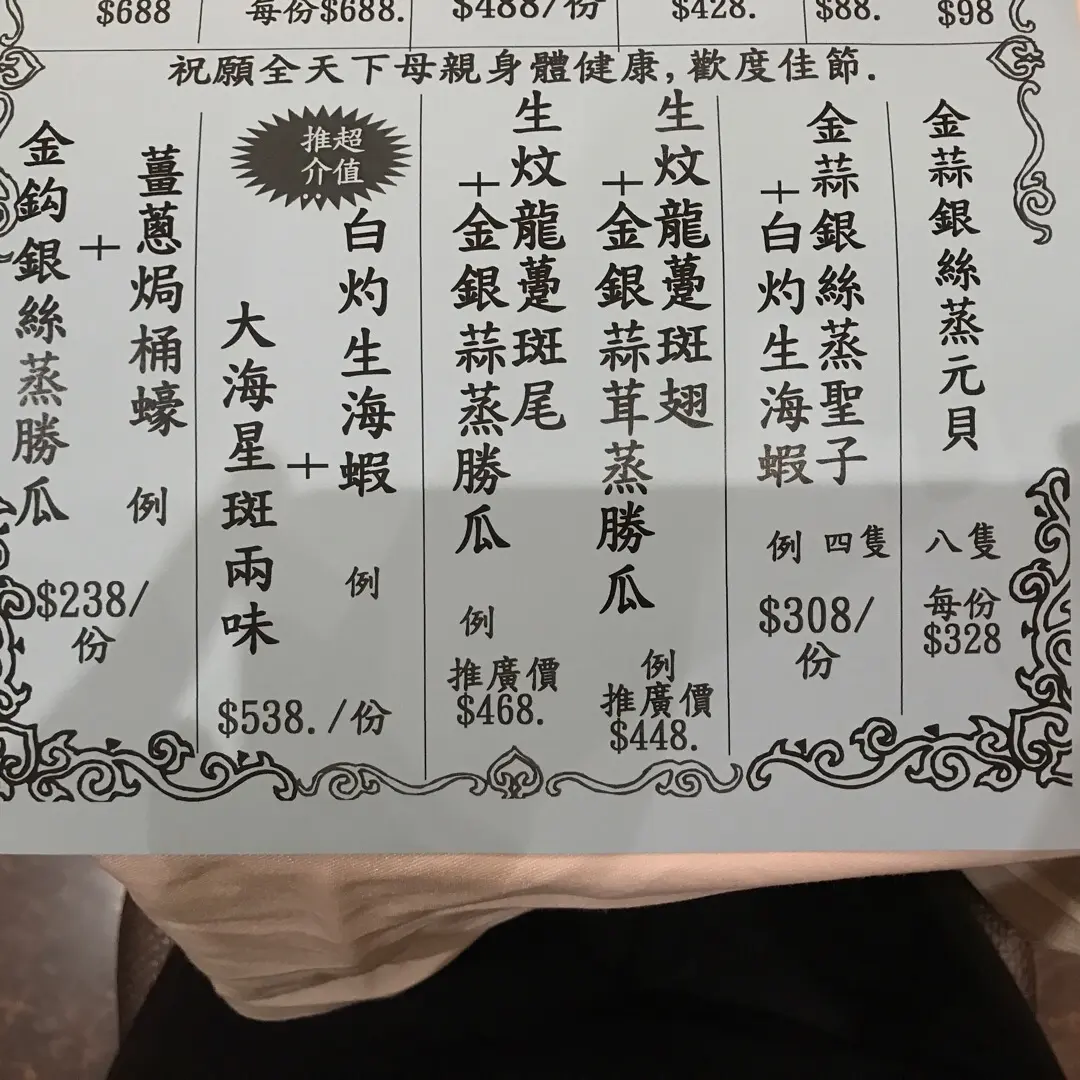 $688
每份$688.
$488/份
$428.
$88.
$98
祝願全天下母親身體健康,歡度佳節.
金蒜銀絲蒸元貝
八隻
每份
$328
金蒜銀絲蒸聖子
四隻
+白灼生海蝦
例
$308/
份
生炆龍躉斑翅
+金銀蒜茸蒸勝瓜
例
推廣價
$448.
生炆龍躉斑尾
+金銀蒜蒸勝瓜
例
推廣價
$468.
超值
推介:
白灼生海蝦
例
+
大海星斑兩味
$538./份
薑蔥焗桶蠔
例
+
金鈎銀絲蒸勝瓜
$238/
份